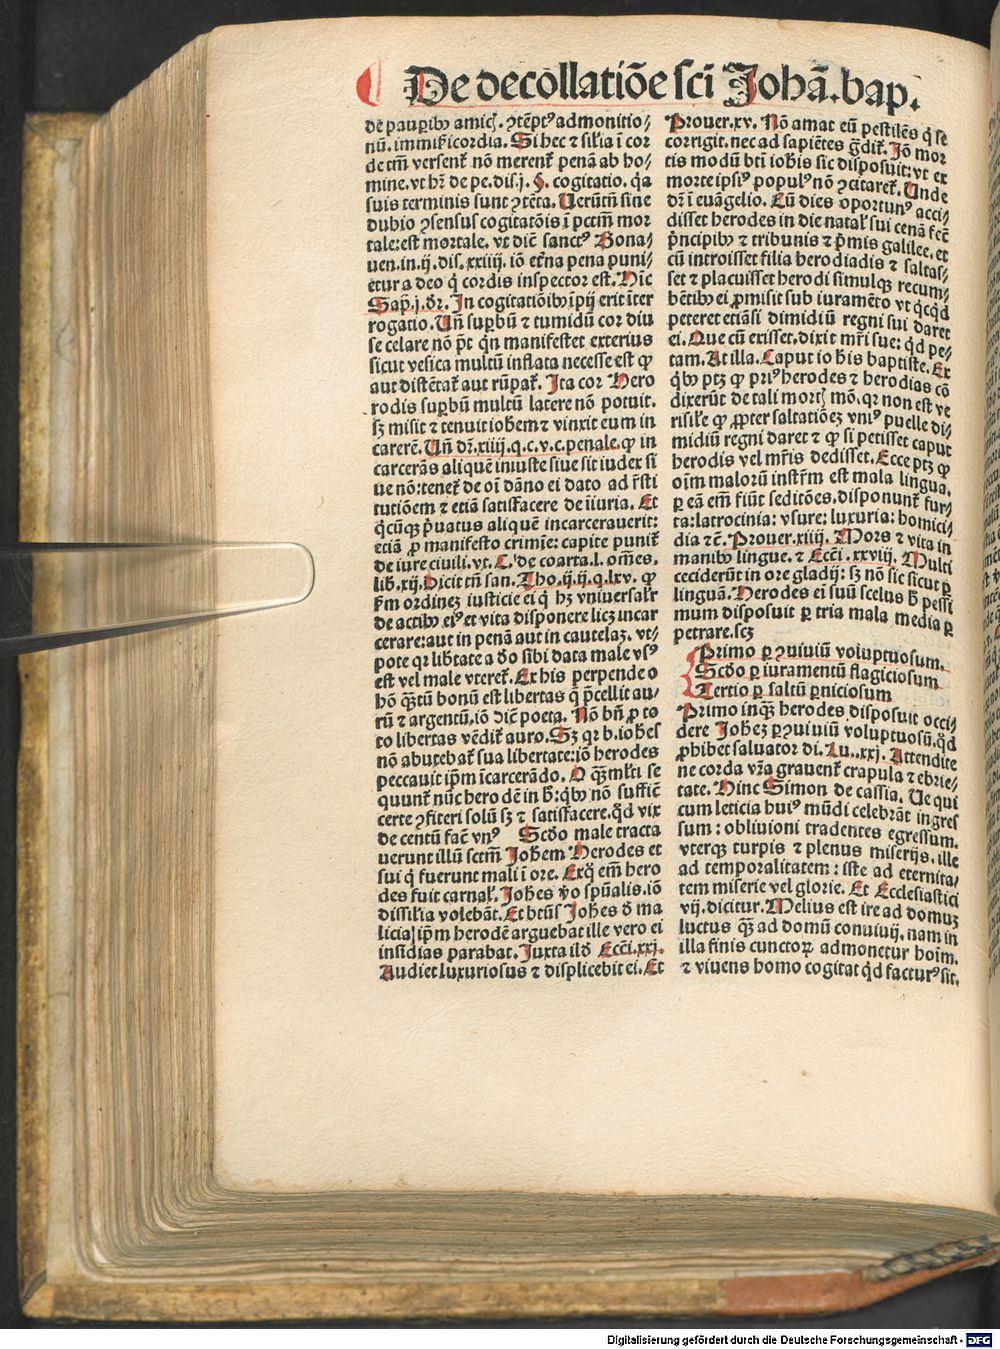 De decollatiōe sci̅ Johā. bap.
dē paup̲ibꝰ amic̄ꝭ. ꝯtēptꝰ admonitio⸗
nū. immis̄icordia. Si hec ⁊ sil̄ia ī cor
de tm̄ versent᷑ nō merent᷑ penā ab ho⸗
mine. vt hr̄ de pe. dis. j. §. cogitatio. q̄a
suis terminis sunt ꝯtēta. Uerūtn̄ sine
dubio ꝯsensus cogitatōis ī pctm̄ mor
tale: est mortale. vt dic̄ sanctꝰ Bona⸗
uen. in. ij. dis. xxiiij. iō et̄na pena puni⸗
etur a deo q̄ cordis inspector est. Hic
Sap̄. j. dr̄. In cogitatiōibꝰ īpij erit īter
rogatio. Un̄ sup̲bū ⁊ tumidū cor diu
se celare nō p̄t q̄n manifestet exterius
sicut vesica multū inflata necesse est ꝙ
aut distēdat᷑ aut rūpat᷑. Ita cor Hero
rodis sup̲bū multū latere nō potuit.
sꝫ misit ⁊ tenuit iohem̄ ⁊ vinxit eum in
carcerē. Un̄ dr̄. xiiij. q. c. v. c. penale. ꝙ in
carcerās aliquē iniuste siue sit iudex si
ue nō: tenet᷑ de oī dāno ei dato ad r̄sti
tutiōem ⁊ etiā satisfacere de īiuria. Et
q̄cūqꝫ p̄uatus aliquē incarcerauerit:
etiā ꝓ manifesto crimīe: capite punit᷑
de iure ciuili. vt. C. de coarta. l. om̄es.
lib. xij. Dicit tn̄ san. Tho. ij. ij. q. lxv. ꝙ
ẜm ordinez iusticie ei q̄ hꝫ vniuersal᷑r
de actibꝰ eiꝰ et vita disponere licꝫ incar
cerare: aut in penā aut in cautelaꝫ. vt⸗
pote qr lib̄tate a deo sibi data male vsꝰ
est vel male vteret᷑. Ex his perpende o
hō q̄ꝫtū bonū est libertas q̄ p̄cellit au⸗
rū ⁊ argentū. iō dic̄ poeta. Nō bn̄ ꝓ to
to libertas vēdit᷑ auro. Sꝫ qr b. iohēs
nō abutebat᷑ sua libertate: iō herodes
peccauit ip̄m īcarcerādo. O q̄ꝫ ml̄ti se
quunt᷑ nūc herodē in h̄: q̄bꝰ nō suffic̄
certe ꝯfiteri solū sꝫ ⁊ satisfacere. q̄d vix
de centū fac̄ vnꝰ Scdo male tracta
uerunt illū sctm̄ Johem̄ Herodes et
sui q̄ fuerunt mali ī ore. Exq̄ em̄ hero
des fuit carnal᷑. Johēs v̄o spūalis. iō
dissil̄ia volebāt. Et btūs Johēs d̄ ma
licia ip̄m herodē arguebat ille vero ei
insidias parabat. Juxta ild̄ Eccī. xxj.
Audiet luxuriosus ⁊ displicebit ei. Et
Prouer. xv. Nō amat eū pestilēs q̄ se
corrigit. nec ad sapiētes ḡdit᷑. Iō mor
tis modū bti̅ iohis sic disposuit: vt ex
morte ipsiꝰ populꝰ nō ꝯcitaret᷑. Unde
dr̄ ī euāgelio. Cū dies oportunꝰ acci⸗
disset herodes in die natal᷑ sui cenā fec̄
p̄ncipibꝰ ⁊ tribunis ⁊ p̄mis galilee. et
cū introisset filia herodiadis ⁊ saltas⸗
set ⁊ placuisset herodi simulqꝫ recum⸗
bētibꝰ ei ꝓmisit sub iuramēto vt q̄cq̄d
peteret etiāsi dimidiū regni sui daret
ei. Que cū exisset. dixit mr̄i sue: q̄d pe⸗
tam. At illa. Caput iohis baptiste. Ex
q̄bꝰ ptꝫ ꝙ priꝰ herodes ⁊ herodias cō
dixerūt de tali mort̄ꝭ mō. qr non est ve
risil̄e ꝙ ꝓpter saltatiōeꝫ vniꝰ puelle di⸗
midiū regni daret ⁊ ꝙ si petisset caput
herodis vel mr̄is dedisset. Ecce ptꝫ ꝙ
oīm malorū instr̄m est mala lingua.
p̲ eā em̄ fiūt seditōes. disponunt᷑ fur⸗
ta: latrocinia: vsure: luxuria: homici⸗
dia ⁊c̄. Prouer. xiiij. Mors ⁊ vita in
manibꝰ lingue. ⁊ Eccī. xxviij. Multi
ceciderūt in ore gladij: sꝫ nō sic sicut p̲
linguā. Herodes ei suū scelus h̄ pessi
mum disposuit p̲ tria mala media p̲
petrare. scꝫ
Primo p̲ ꝯuiuiū voluptuosum.
Scdo p̲ iuramentū flagiciosum
Tertio p̲ saltū p̲niciosum
Primo inqꝫ herodes disposuit occi⸗
dere Johez p̲ ꝯuiuiū voluptuosū. q̄d
ꝓhibet saluator di. Lu.. xxj. Attendite
ne corda vr̄a grauent᷑ crapula ⁊ ebrie⸗
tate. Hinc Simon de cassia. Ue qui
cum leticia huiꝰ mūdi celebrāt ingres
sum: obliuioni tradentes egressum.
vterqꝫ turpis ⁊ plenus miserijs. ille
ad temporalitatem: iste ad eternita⸗
tem miserie vel glorie. Et Ecclesiastici
vij. dicitur. Melius est ire ad domuꝫ
luctus q̄ꝫ ad domū conuiuij. nam in
illa finis cunctoꝝ admonetur hoīm.
⁊ viuens homo cogitat q̄d facturꝰ sit.
Digitalisierung gefördert durch die Deutsche Forschungsgemeinschaft - DFG